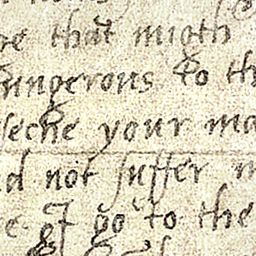 that migth
ungerous to th
seche your ma
d not suffer m
e. I go to the